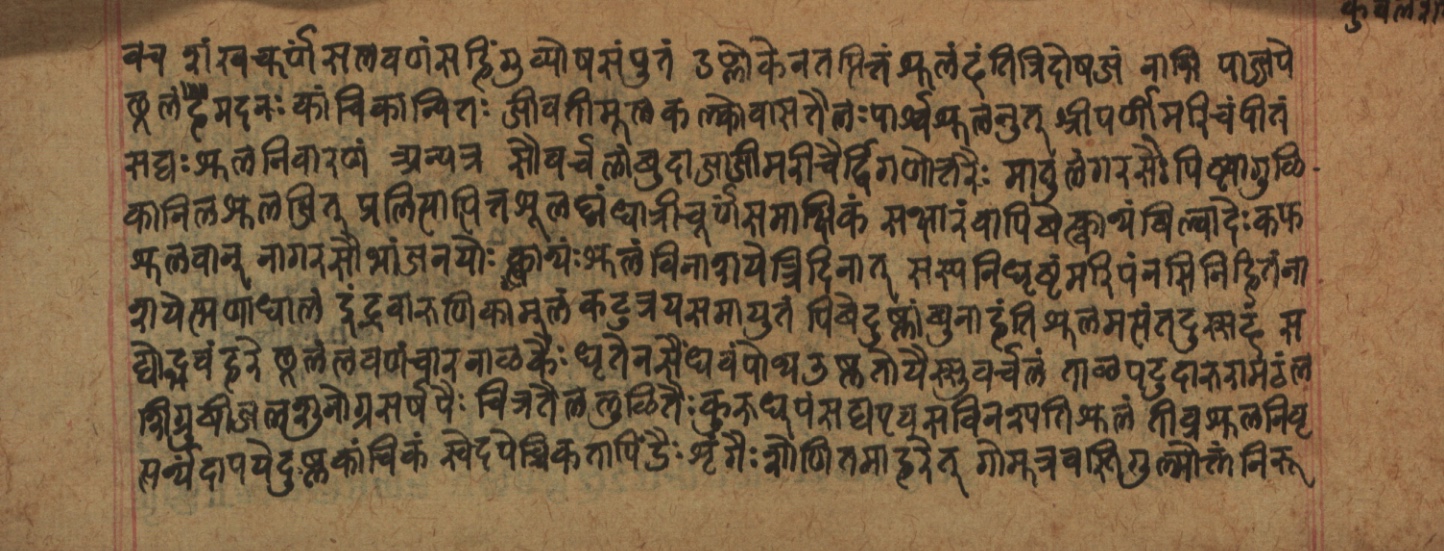 कुवलश
वच शंखचूर्णं सलवणं सहिंगु व्योषसंयुतं उष्णोकेन तत्पितं शूलं हंति त्रिदोषजं नाभि पाज्जपे
छूलं मदनः कांचिकान्वितः जीवतीमूलकल्कोवासतैलः पार्श्वशूलनुत् श्रीपर्णीमरिचं पीतं
सद्यः शूलनिवारणं अन्यत्र सौवर्चलांबुदाजाजीमरीचैर्द्विगणोत्तरैः मातुलंगरसैः पिष्ट्वागुळि
कानिलशूलजित् प्रलिह्यात्पित्तशूलघ्नं धात्रीचूर्णं समाक्षिकं सक्षारं वापिबेत्क्वाथं बिल्वादेः कफ
शूलवान् नागरसौभांजनयोः क्वाथंः शूलं विनाशयेत्त्रिदिनात् सस्यनिधृष्टं मरिचं नसि निहितं ना
शयेत्क्षणाधालं इंद्रवारुणिकामूलं कटुत्रयसमायुतं पिबेदुष्णांबुना हंति शूलमसंतदुस्सहं स
द्योद्भवं हरेछूलं लवणंचारनाळकैः धृतेन सैंधवं पोथ उष्णतोयैस्सुवर्चलं ताळपटुदारुरामठंल
शिग्रुबीजलशुनोग्रसर्षपैः चित्रतैललुळितैः कुरु धूपं सद्य एव सविनश्यति शूलं तीव्रशूलनिवृ
त्यर्थं दापयेदुष्णकांचिकं स्वेदयेत्सिकतापिंडैः शृंगैः शोणितमाहरेत् गोमूत्र वस्ति गुल्मोक्तं निरू